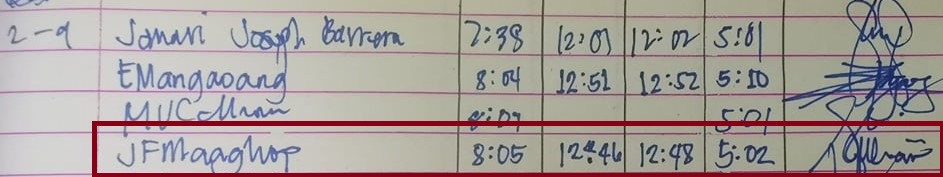 2-9 Jomari Joseph Barrera 7:38 12:01 12:02 5:01
EMangaoang 8:04 12:51 12:52 5:10
5:01
8:05 12:46 12:48 5:02